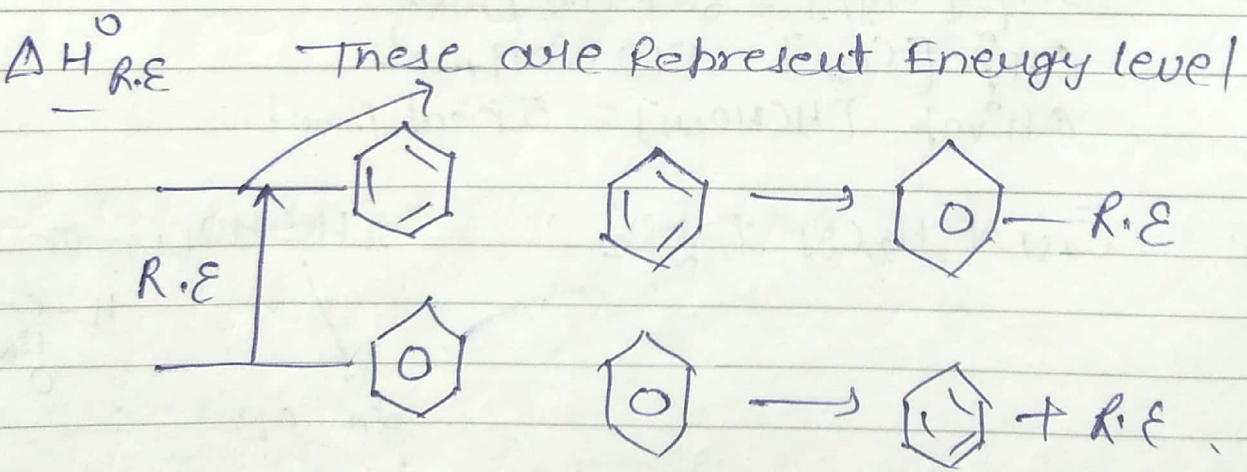 ΔH°R.E These are Represent Energy level
— R.E
R.E
+ R.E.